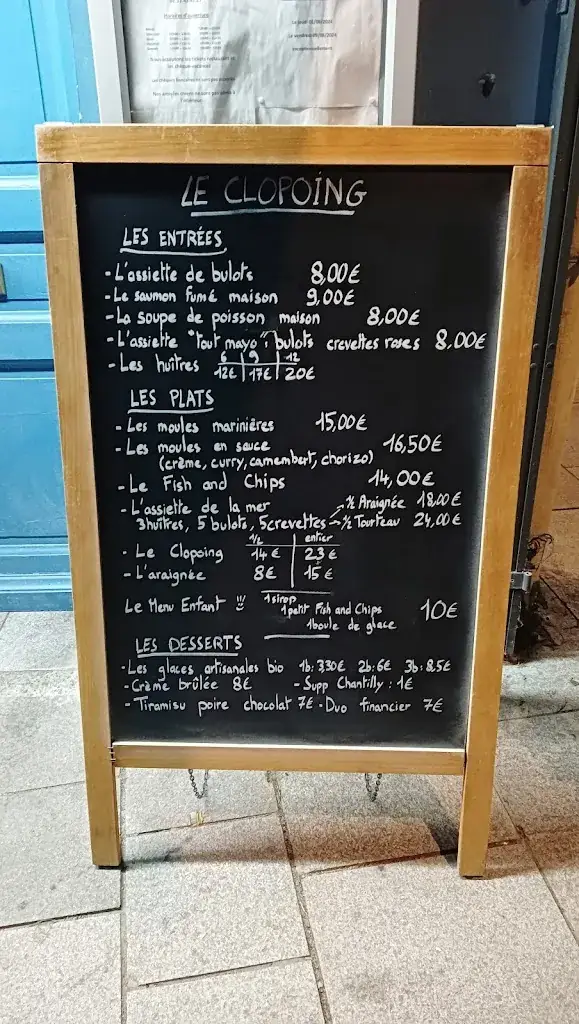 Horaires d'ouverture
LE CLOPOING
LES ENTRÉES
- L'assiette de bulots 8,00€
- Le saumon fumé maison 9,00€
- La soupe de poisson maison 8,00€
- L'assiette "tout mayo": bulots crevettes roses 8,00€
6 | 9 | 12
- Les huîtres 12€ | 17€ | 20€
LES PLATS
- Les moules marinières 15,00€
- Les moules en sauce 16,50€
(crème, curry, camembert, chorizo)
- Le Fish and Chips 14,00€
- L'assiette de la mer ½ Araignée 18,00€
3 huîtres, 5 bulots, 5 crevettes ½ Tourteau 24,00€
1/2 | entier
- Le Clopoing 14€ | 23€
- L'araignée 8€ | 15€
Le Menu Enfant !!! 1 sirop
1 petit Fish and Chips 10€
1 boule de glace
LES DESSERTS
- Les glaces artisanales bio 1b: 3.30€ 2b: 6€ 3b: 8.5€
- Crème brûlée 8€ - Supp Chantilly : 1€
- Tiramisu poire chocolat 7€ - Duo financier 7€